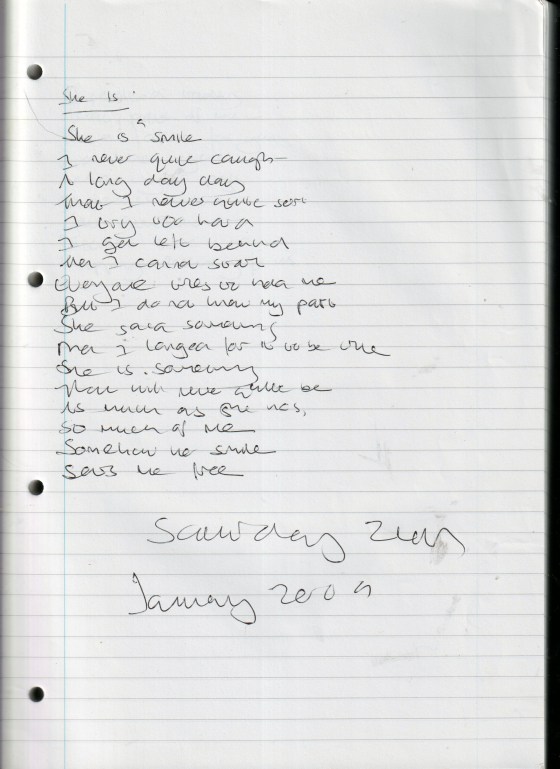 She is
She is a smile
I never quite caught
A long day day
that I never quite see
I try too hard
I get left behind
her I cannot
Everyone tries to hear me
But I do not know my part
She said something
that I longed for it to be true
She is something
that will never quite be
As much as she has,
so much of me
Somehow her smile
sets me free
Saturday
January 2009